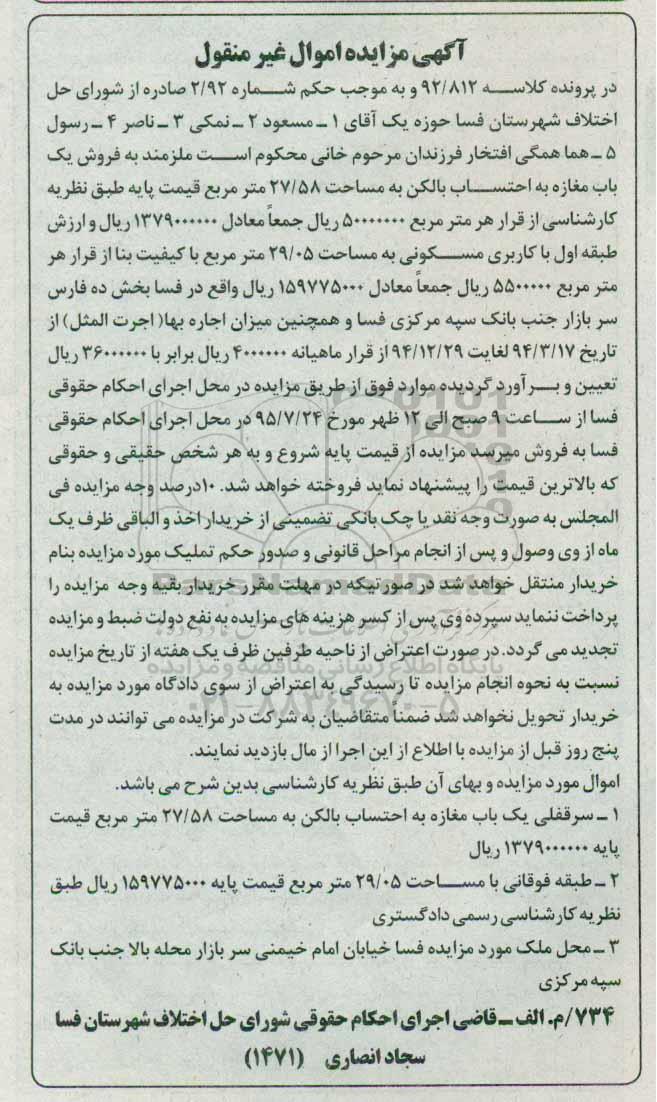 آگهی مزایده اموال غیر منقول
در پرونده کلاسه ۹۲/۸۱۲ و به موجب حکم شماره ۲/۹۲ صادره از شورای حل
اختلاف شهرستان فسا حوزه یک آقای ۱ ـ مسعود ۲ ـ نمکی ۳ ـ ناصر ۴ ـ رسول
۵ ـ هما همگی افتخار فرزندان مرحوم خانی محکوم است ملزمند به فروش یک
باب مغازه به احتساب بالکن به مساحت ۲۷/۵۸ متر مربع قیمت پایه طبق نظریه
کارشناسی از قرار هر متر مربع ۵۰۰۰۰۰۰۰ ریال جمعاً معادل ۱۳۷۹۰۰۰۰۰۰ ریال و ارزش
طبقه اول با کاربری مسکونی به مساحت ۲۹/۰۵ متر مربع با کیفیت بنا از قرار هر
متر مربع ۵۵۰۰۰۰۰ ریال جمعاً معادل ۱۵۹۷۷۵۰۰۰ ریال واقع در فسا بخش ده فارس
سر بازار جنب بانک سپه مرکزی فسا و همچنین میزان اجاره بها( اجرت المثل) از
تاریخ ۹۴/۳/۱۷ لغایت ۹۴/۱۲/۲۹ از قرار ماهیانه ۴۰۰۰۰۰۰ ریال برابر با ۳۶۰۰۰۰۰۰ ریال
تعیین و برآورد گردیده موارد فوق از طریق مزایده در محل اجرای احکام حقوقی
فسا از ساعت ۹ صبح الی ۱۲ ظهر مورخ ۹۵/۷/۲۴ در محل اجرای احکام حقوقی
فسا به فروش میرسد مزایده از قیمت پایه شروع و به هر شخص حقیقی و حقوقی
که بالاترین قیمت را پیشنهاد نماید فروخته خواهد شد. ۱۰درصد وجه مزایده فی
المجلس به صورت وجه نقد یا چک بانکی تضمینی از خریدار اخذ و الباقی ظرف یک
ماه از وی وصول و پس از انجام مراحل قانونی و صدور حکم تملیک مورد مزایده بنام
خریدار منتقل خواهد شد در صورتیکه در مهلت مقرر خریدار بقیه وجه مزایده را
پرداخت ننماید سپرده وی پس از کسر هزینه های مزایده به نفع دولت ضبط و مزایده
تجدید می گردد. در صورت اعتراض از ناحیه طرفین ظرف یک هفته از تاریخ مزایده
نسبت به نحوه انجام مزایده تا رسیدگی به اعتراض از سوی دادگاه مورد مزایده به
خریدار تحویل نخواهد شد ضمناً متقاضیان به شرکت در مزایده می توانند در مدت
پنج روز قبل از مزایده با اطلاع از این اجرا از مال بازدید نمایند.
اموال مورد مزایده و بهای آن طبق نظریه کارشناسی بدین شرح می باشد.
۱ ـ سرقفلی یک باب مغازه به احتساب بالکن به مساحت ۲۷/۵۸ متر مربع قیمت
پایه ۱۳۷۹۰۰۰۰۰۰ ریال
۲ ـ طبقه فوقانی با مساحت ۲۹/۰۵ متر مربع قیمت پایه ۱۵۹۷۷۵۰۰۰ ریال طبق
نظریه کارشناسی رسمی دادگستری
۳ ـ محل ملک مورد مزایده فسا خیابان امام خیمنی سر بازار محله بالا جنب بانک
سپه مرکزی
۷۳۴/م. الف ـ قاضی اجرای احکام حقوقی شورای حل اختلاف شهرستان فسا
سجاد انصاری (۱۴۷۱)
ParsNamadData
پایگاه اطلاع رسانی مناقصه و مزایده
۰۲۱-۸۸۳۴۹۶۷۰-۵